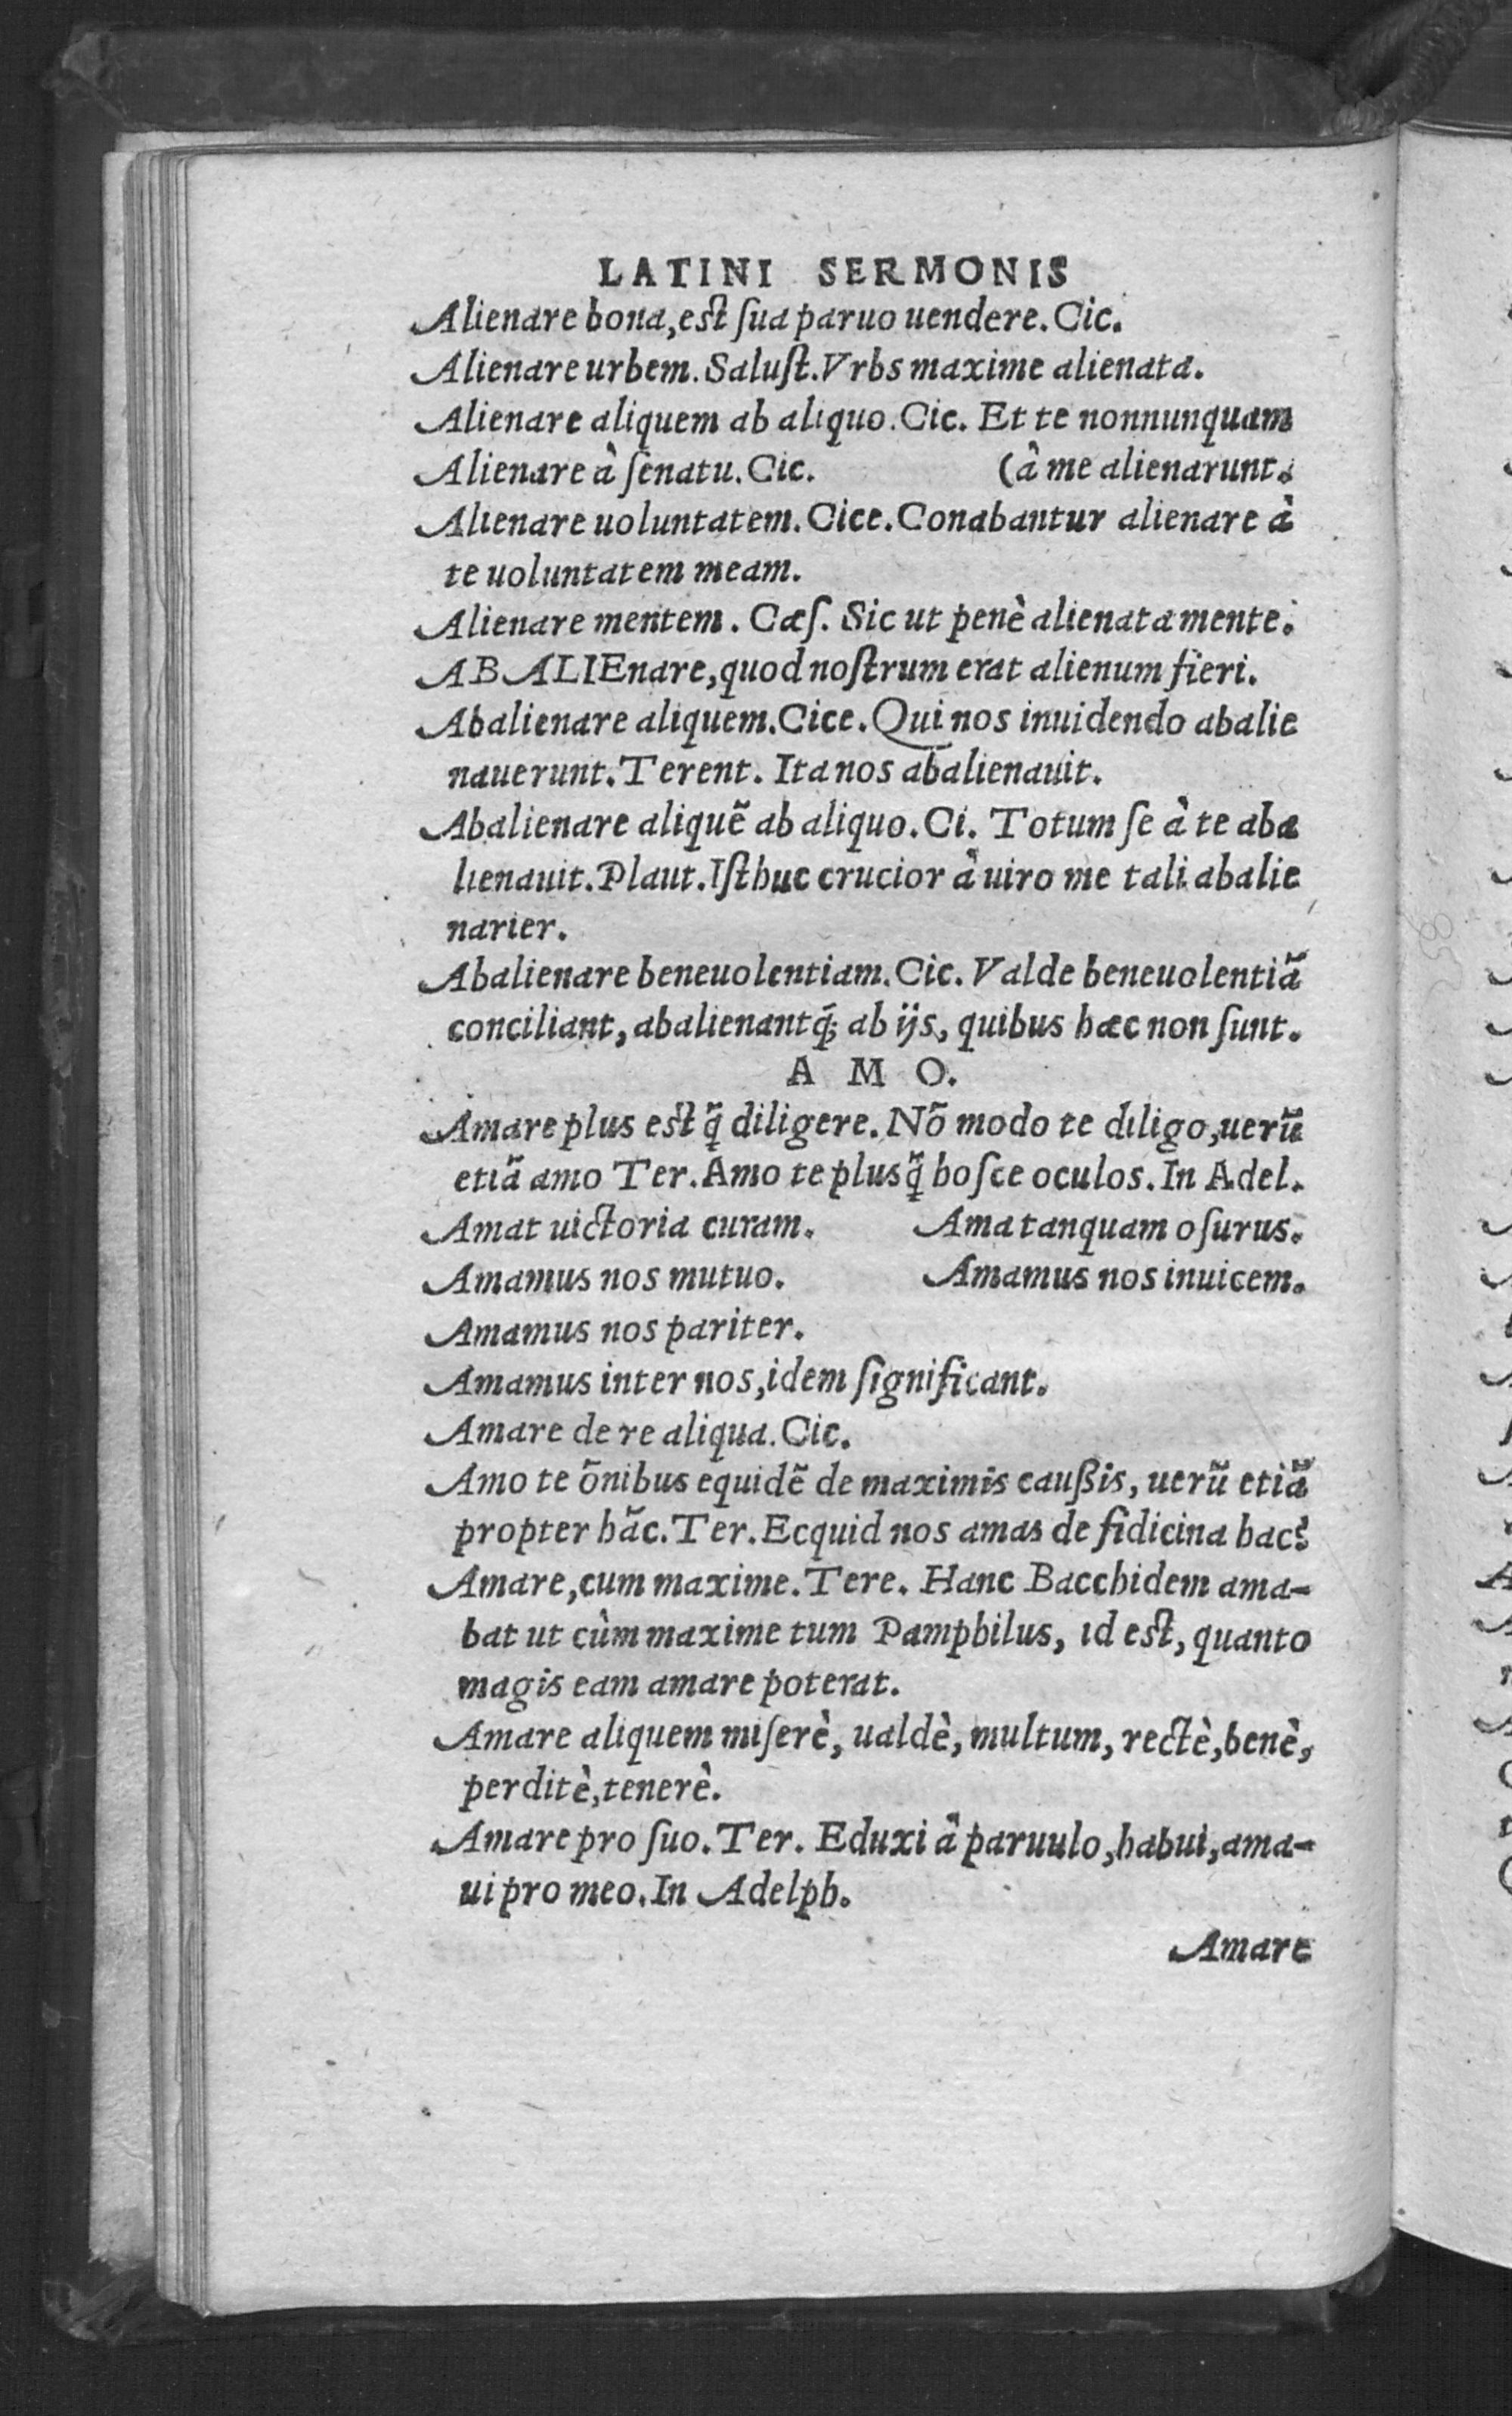 LATINI SERMONIS
Alienare bona, est ſua paruo uendere. Cic.
Alienare urbem. Saluſt. Vrbs maxime alienata.
Alienare aliquem ab aliquo. Cic. Et te nonnunquam
Alienare à ſenatu. Cic. (â me alienarunt.
Alienare uoluntatem. Cice. Conabantur alienare à
te uoluntatem meam.
Alienare mentem. Cæſ. Sic ut penè alienata mente.
ABALIEnare, quod noſtrum erat alienum fieri.
Abalienare aliquem. Cice. Qui nos inuidendo abalie
nauerunt. Terent. Ita nos abalienauit.
Abalienare aliquẽ ab aliquo. Ci. Totum ſe à te aba
lienauit. Plaut. Iſthuc crucior â uiro me tali abalie
narier.
Abalienare beneuolentiam. Cic. Valde beneuolentiã
conciliant, abalienantq́; ab ijs, quibus hæc non ſunt.
A M O.
Amare plus est q̃ diligere. Nõ modo te diligo, uerũ
etiã amo Ter. Amo te plusq̃ hoſce oculos. In Adel.
Amat uictoria curam. Ama tanquam oſurus.
Amamus nos mutuo. Amamus nos inuicem.
Amamus nos pariter.
Amamus inter nos, idem ſignificant.
Amare de re aliqua. Cic.
Amo te õnibus equidẽ de maximis caußis, uerũ etiã
propter hãc. Ter. Ecquid nos amas de fidicina hac?
Amare, cum maxime. Tere. Hanc Bacchidem ama-
bat ut cùm maxime tum Pamphilus, id est, quanto
magis eam amare poterat.
Amare aliquem miſerè, ualdè, multum, rectè, benè,
perditè, tenerè.
Amare pro ſuo. Ter. Eduxi â paruulo, habui, ama-
ui pro meo. In Adelph.
Amare